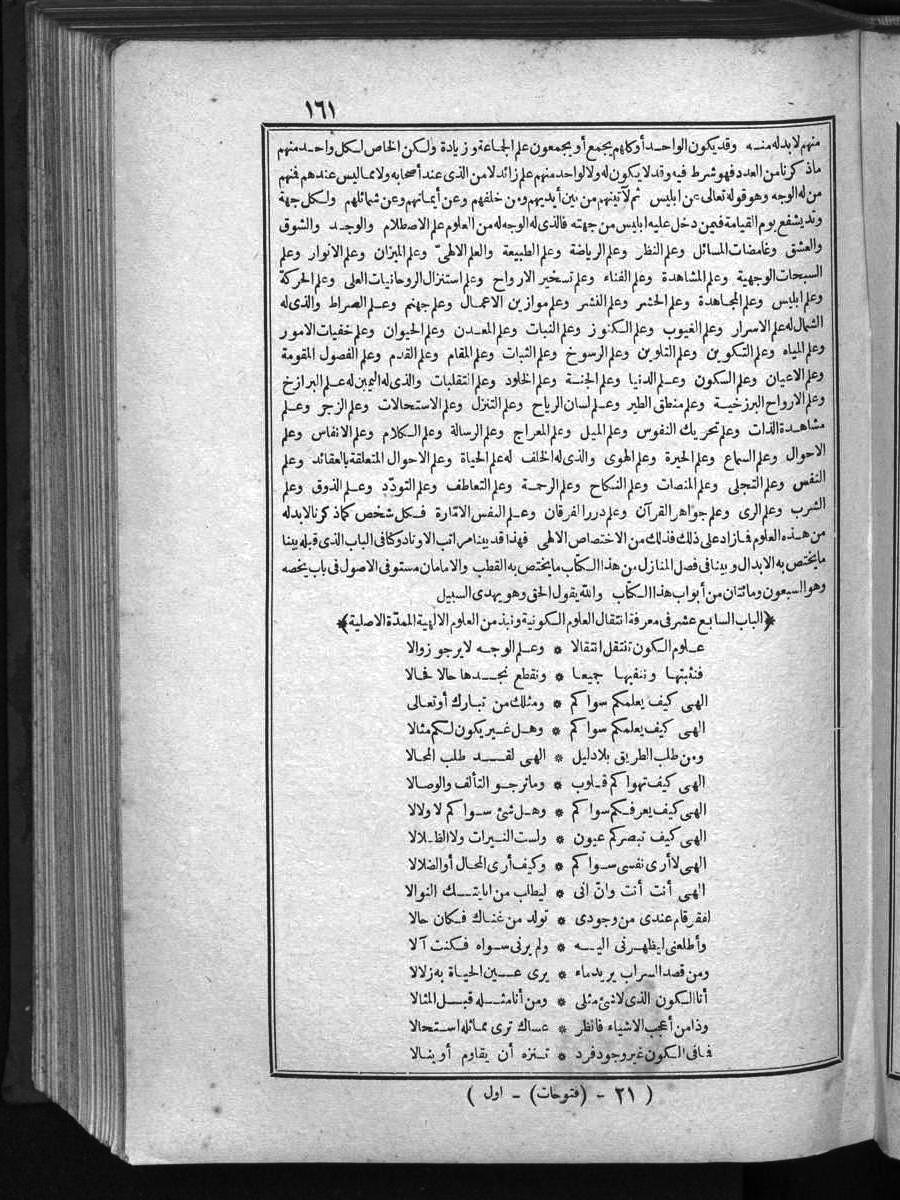 ١٦١
منهم لا بدله منـه وقد يكون الواحـد أوكلهم يجمع أو يجمعون علم الجماعة وزيادة ولكن الخاص لـكل واحـد منهم
ماذكرنا من العدد فهو شرط فيه وقد لا يكون له ولا لواحد منهم علم زائد لا من الذى عند أصحابه ولا مما ليس عندهم فنهم
من له الوجه وهو قوله تعالى عن ابليس ثم لآ تينهم من بين أيديهم ومن خلفهم وعن أيمانهم وعن شمائلهم ولـكل جهة
وتد يشفع يوم القيامة فيمن دخل عليه ابليس من جهته فالذى له الوجه له من العلوم علم الاصطلام والوجـد والشوق
والعشق وغامضات المسائل وعلم النظر وعلم الرياضة وعلم الطبيعة والعلم الالهىّ وعلم الميزان وعلم الانوار وعلم
السبحات الوجهية وعلم المشاهدة وعلم الفناء وعلم تسخير الارواح وعلم استنزال الروحانيات العلى وعلم الحركة
وعلم ابليس وعلم المجاهدة وعلم الحشر وعلم النشر وعلم موازين الاعمـال وعلم جهنم وعـلم الصراط والذى له
الشمال له علم الاسرار وعلم الغيوب وعلم الـكنوز وعلم النبات وعلم المعـدن وعلم الحيوان وعلم خفيات الامور
وعلم المياه وعلم التـكوين وعلم التلوين وعلم الرسوخ وعلم الثبات وعلم المقام وعلم القدم وعلم الفصول المقومة
وعلم الاعيان وعلم السكون وعـلم الدنيا وعلم الجنـة وعلم الخلود وعلم التقلبات والذى له اليمين له عـلم البرازخ
وعلم الارواح البرزخيـة وعلم منطق الطير وعـلم لسان الرياح وعلم التنزل وعلم الاستحالات وعلم الزجر وعـلم
مشاهـدة الذات وعلم تحريك النفوس وعلم الميل وعلم المعراج وعلم الرسالة وعلم الـكلام وعلم الانفاس وعلم
الاحوال وعلم السماع وعلم الحيرة وعلم الهوى والذى له الخلف له علم الحياة وعلم الاحوال المتعلقة بالعقائد وعلم
النفس وعلم التجلى وعلم المنصات وعلم النـكاح وعلم الرحمـة وعلم التعاطف وعلم التودّد وعـلم الذوق وعلم
الشرب وعلم الرى وعلم جواهر القرآن وعلم درر الفرقان وعـلم النفس الامّارة فـكل شخص كما ذكرنا لا بد له
من هـذه العلوم فما زاد على ذلك فذلك من الاختصاص الالهى فهذا قد بينا مراتب الاوتاد وكنا فى الباب الذى قبله بينا
ما يختص به الابدال وبينا فى فصل المنازل من هذا الـكتاب ما يختص به القطب والامامان مستوفى الاصول فى باب يخصه
وهو السبعون ومائتان من أبواب هذا الـكتاب والله يقول الحق وهو يهدى السبيل
﴿الباب السابع عشر فى معرفة انتقال العلوم الـكونية ونبذ من العلوم الالهية الممدّة الاصلية﴾
عـلوم الـكون تنتقل انتقالا * وعـلم الوجـه لا يرجو زوالا
فنثبتهـا وننفيهـا جميعـا * ونقطع نجـدها حالا فحالا
الهـى كيف يعلمكم سواكم * ومثلك من تبـارك أوتعـالى
الهـى كيف يعلمكم سواكم * وهـل غـير يكون لـكم مثالا
ومن طلب الطريق بلا دليل * الهى لقـد طلب المحـالا
الهى كيف تهواكم قـلوب * وما ترجـو التألف والوصـالا
الهى كيف يعرفـكم سواكم * وهـل شئ سـواكم لا ولا لا
الهى كيف تبصركم عيون * ولست النـيرات ولا الظـلالا
الهى لا أرى نفسى سـواكم * وكيف أرى المحـال أو الضلالا
الهـى أنت أنت وانّ انى * ليطلب من انايتـك النوالا
لفقر قام عندى من وجودى * تولد من غنـاك فـكان حالا
وأطلعنى ليظهـرنى اليـه * ولم يرنى سـواه فـكنت آلا
ومن قصد السراب يريد ماء * يرى عـين الحيـاة به زلالا
أنا الـكون الذى لا شئ مثلى * ومن أنا مثـله قبـل المثالا
وذا من أعجب الاشياء فانظر * عساك ترى مماثله استـحالا
فـا فى الـكون غير وجود فرد * تـنزه أن يقاوم أو ينـالا
( ٢١ - (فتوحات) - اول )